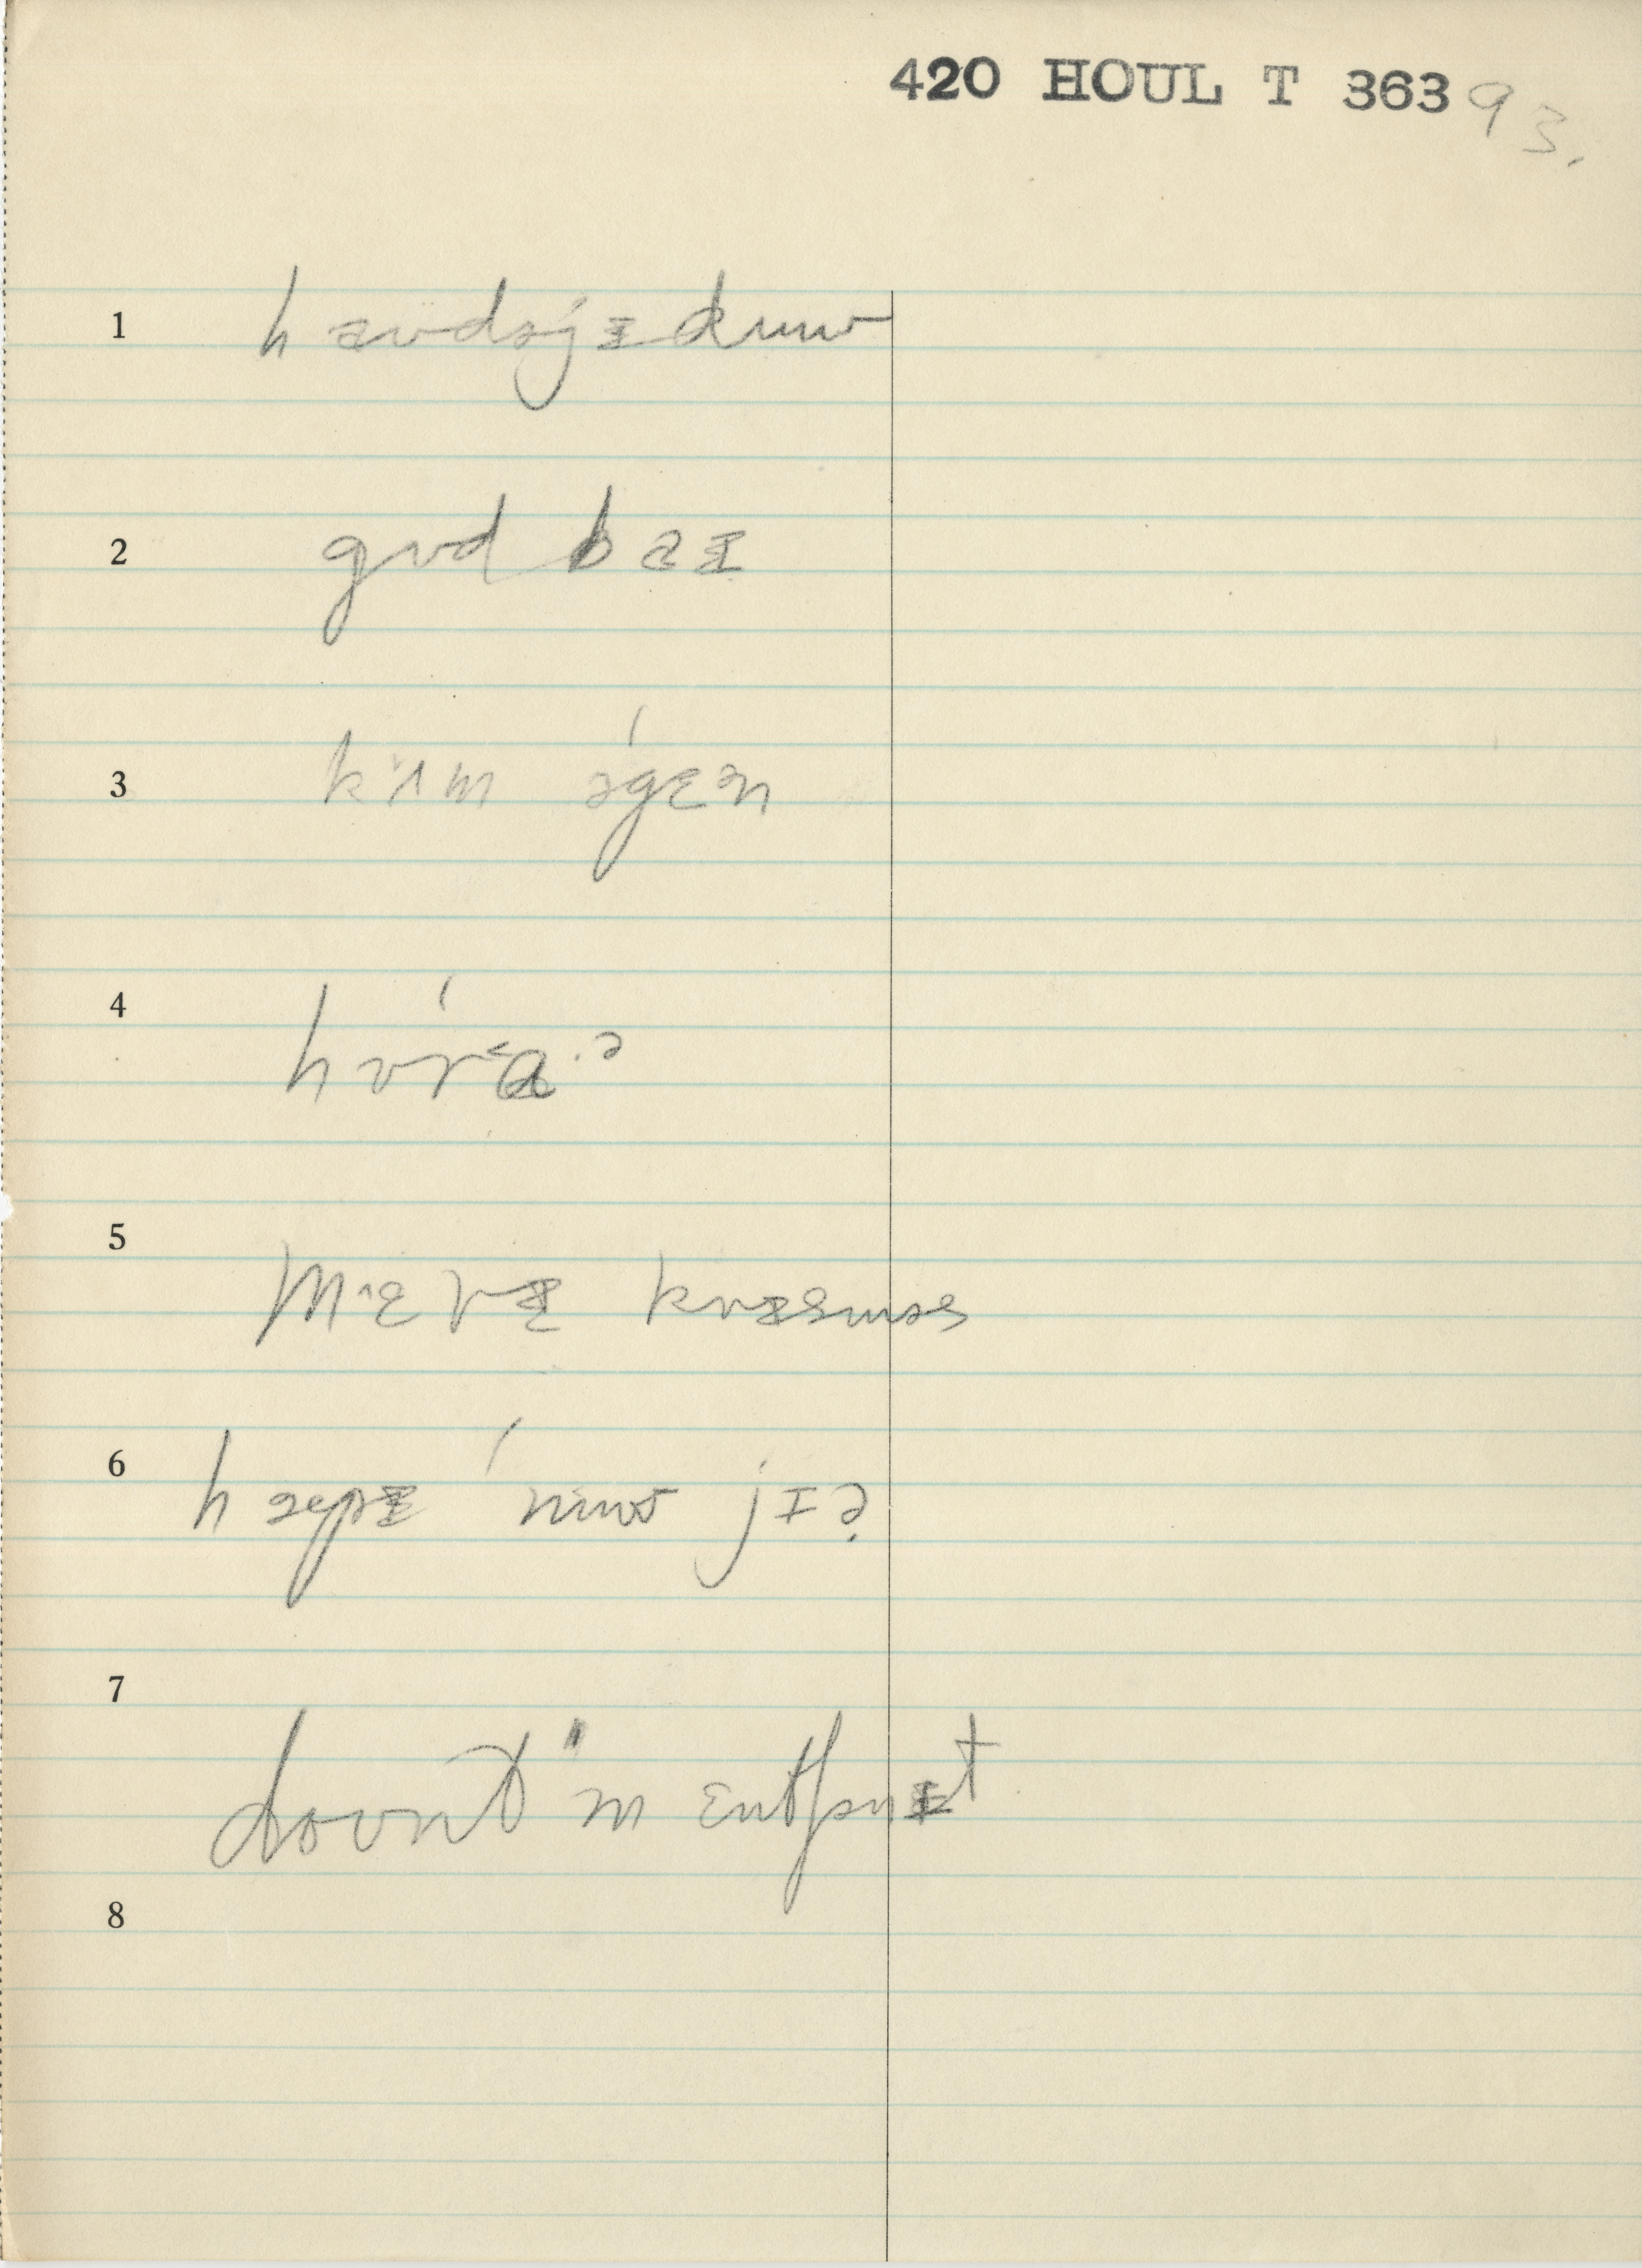 420 HOUL T 363 93.
1 hæʊdəjɪduw
2 gʊd baɪ
3 kʌm əgɛn
4 hʊr<ɑ·ə
5 M^ɛrɪ krɪsməs
6 hæpɪ ˈnuw jɪə
7 doʊnt "m ɛntʃənɪt
8